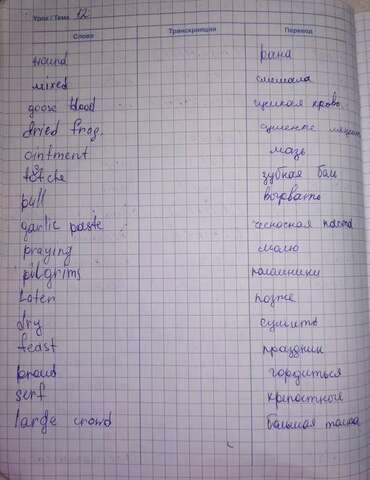 Урок / Тема 12
Слово Транскрипция Перевод
wound рана
mixed смешала
goose blood кровь
dried frog
ointment мазь
зубная боль
pull вырвать
garlic paste чесночная паста
praying молю
pilgrims паломники
Later позже
dry сушить
feast праздник
proud гордиться
serf крепостные
large crowd большая толпа